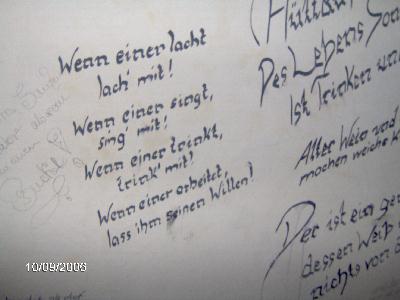 Wenn einer lacht
lach' mit!
Wenn einer singt,
sing' mit!
Wenn einer trinkt,
trink' mit!
Wenn einer arbeitet,
lass ihm seinen Willen!
Des Lebens
Ist Trinken
Alter Wein und
machen weiche
Der ist ein
dessen Weib
nichts von
10/09/2006